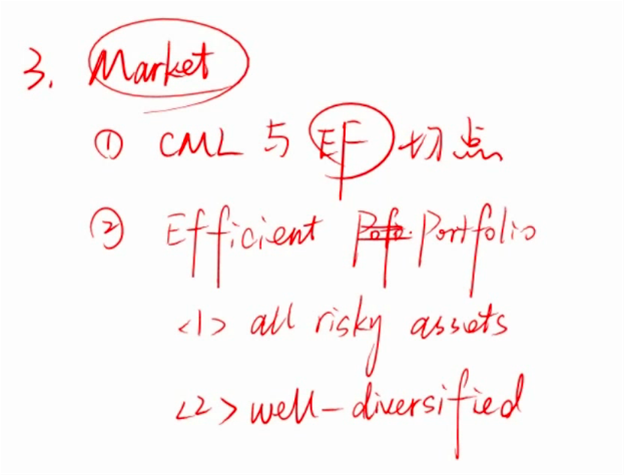 3. Market
① CML 与 EF 切点
② Efficient Portfolio
<1> all risky assets
<2> well-diversified